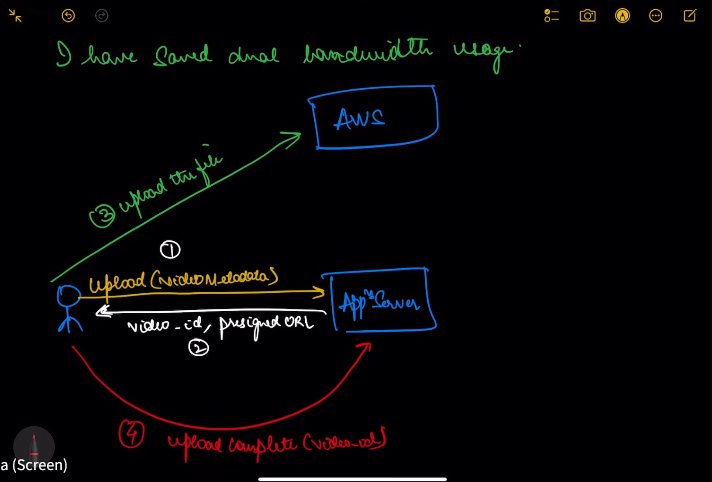 I have saved dual bandwidth usage.
AWS
③ upload the file
①
upload (video Metadata)
Appn Server
video_id, presigned URL
②
④ upload complete (video_id)
a (Screen)